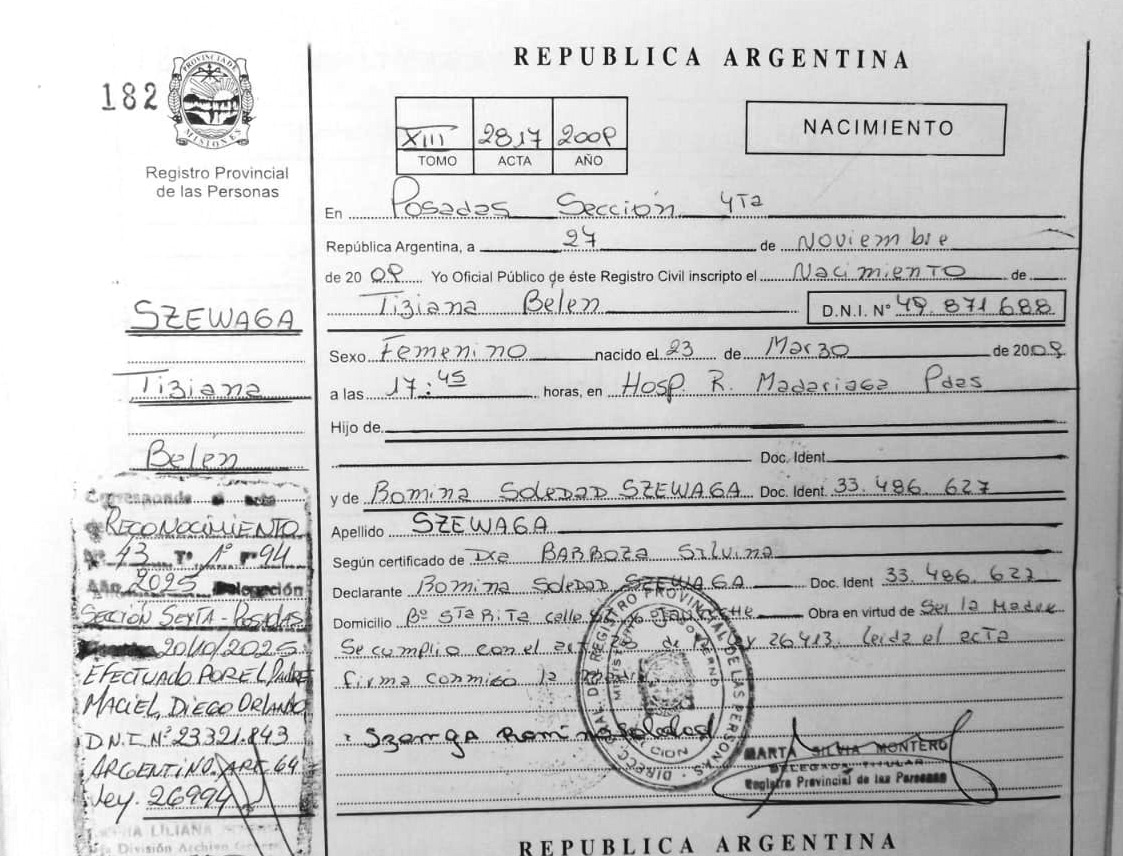 REPUBLICA ARGENTINA
182
PROVINCIA DE MISIONES
Registro Provincial
de las Personas
XIII 2817 2009
TOMO ACTA AÑO
NACIMIENTO
En Posadas Sección 4Ta
República Argentina, a 27 de Noviembre
de 2009 Yo Oficial Público de éste Registro Civil inscripto el Nacimiento de
Tiziana Belen D.N.I. N° 49.871.688
Sexo Femenino nacido el 23 de Marzo de 2009
a las 17:45 horas, en Hosp. R. Madariaga Pdas
Hijo de
Doc. Ident.
y de Romina Soledad SZEWAGA Doc. Ident. 33.486.627
Apellido SZEWAGA
Según certificado de Dra BARBOZA Silvina
Declarante Romina Soledad SZEWAGA Doc. Ident 33.486.627
Domicilio B° Sta Rita calle Obra en virtud de Ser la Madre
Se cumplio con el 26413. Leida el acta
firma conmigo la
Romina Soledad
MARTA SILVIA MONTERO
DELEGADA TITULAR
Registro Provincial de las Personas
SZEWAGA
Tiziana
Belen
Corresponde al acta
RECONOCIMIENTO
N° 43 T° 1° F° 94
Año 2025 Delegación
SECCIÓN SEXTA - POSADAS
20/10/2025
EFECTUADO POR EL PADRE
MACIEL, DIEGO ORLANDO
D.N.I. N° 23.321.843
ARGENTINO. ART. 64
Ley. 26994
LILIANA
División Archivo
REPUBLICA ARGENTINA